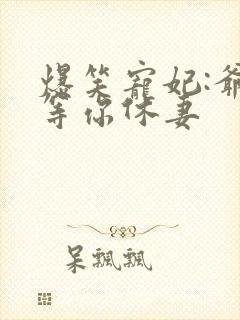 爆笑寵妃:爺
等你休妻
呆飄飄